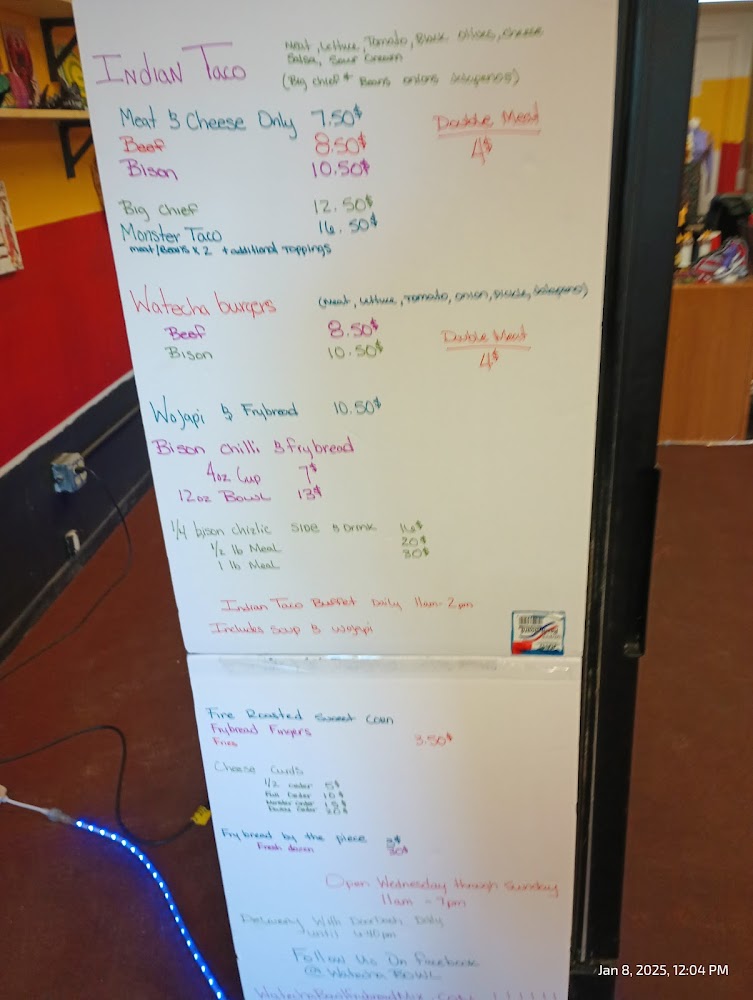 Indian Taco
Meat, Lettuce, Tomato, Black Olives, Cheese
Salsa, Sour Cream
(Big chief + Beans onions Jalapenos)
Meat & Cheese Only 7.50$
Beef 8.50$
Bison 10.50$
Double Meat
4$
Big Chief 12.50$
Monster Taco 16.50$
meat/Beans x 2 + additional Toppings
Watecha burgers (Meat, Lettuce, Tomato, onion, Pickle, Jalapenos)
Beef 8.50$
Bison 10.50$
Double Meat
4$
Wojapi & Frybread 10.50$
Bison Chilli & frybread
4oz Cup 7$
12oz Bowl 13$
1/4 bison chizlic side & Drink 16$
1/2 lb Meal 20$
1 lb Meal 30$
Indian Taco Buffet Daily 11am-2pm
Includes Soup & Wojapi
Fire Roasted Sweet Corn
Frybread Fingers
Fries 3.50$
Cheese Curds
1/2 order 5$
Full Order 10$
Monster order 15$
Double Order 20$
Frybread by the piece 3$
Fresh dozen 30$
Open Wednesday through Sunday
11am - 7pm
Delivery With DoorDash Daily
until 6:40pm
Follow Us On Facebook
@ Watecha BOWL
Jan 8, 2025, 12:04 PM